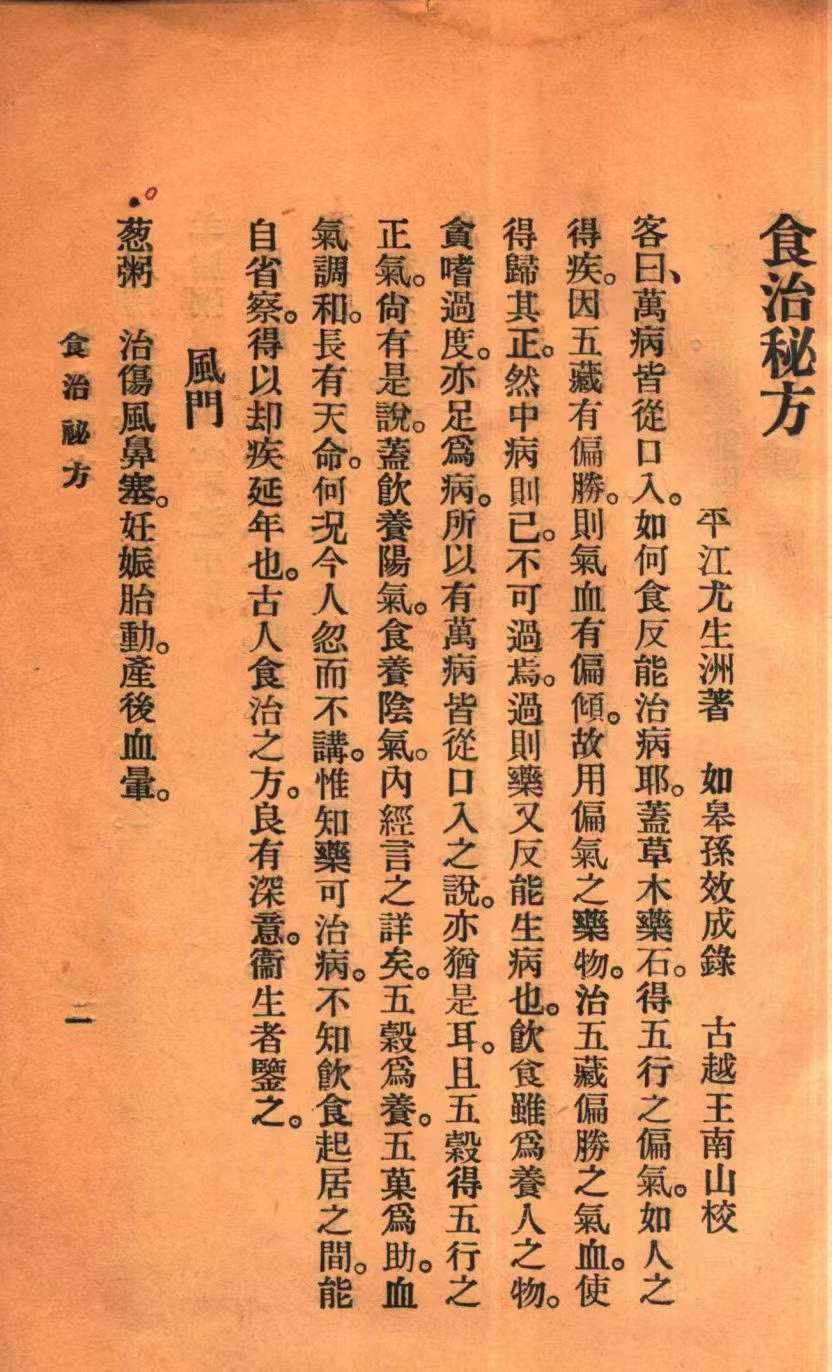 食治秘方
平江尤生洲著　如皋孫效成錄　古越王南山校
客曰、萬病皆從口入。如何食反能治病耶。蓋草木藥石。得五行之偏氣。如人之
得疾。因五藏有偏勝。則氣血有偏傾。故用偏氣之藥物。治五藏偏勝之氣血。使
得歸其正。然中病則已。不可過焉。過則藥又反能生病也。飲食雖爲養人之物。
貪嗜過度。亦足爲病。所以有萬病皆從口入之說。亦猶是耳。且五穀得五行之
正氣。尙有是說。蓋飲養陽氣。食養陰氣。內經言之詳矣。五穀爲養。五菓爲助。血
氣調和。長有天命。何況今人忽而不講。惟知藥可治病。不知飲食起居之間。能
自省察。得以却疾延年也。古人食治之方。良有深意。衞生者鑒之。
風門
葱粥　治傷風鼻塞。妊娠胎動。產後血暈。
食治祕方
一